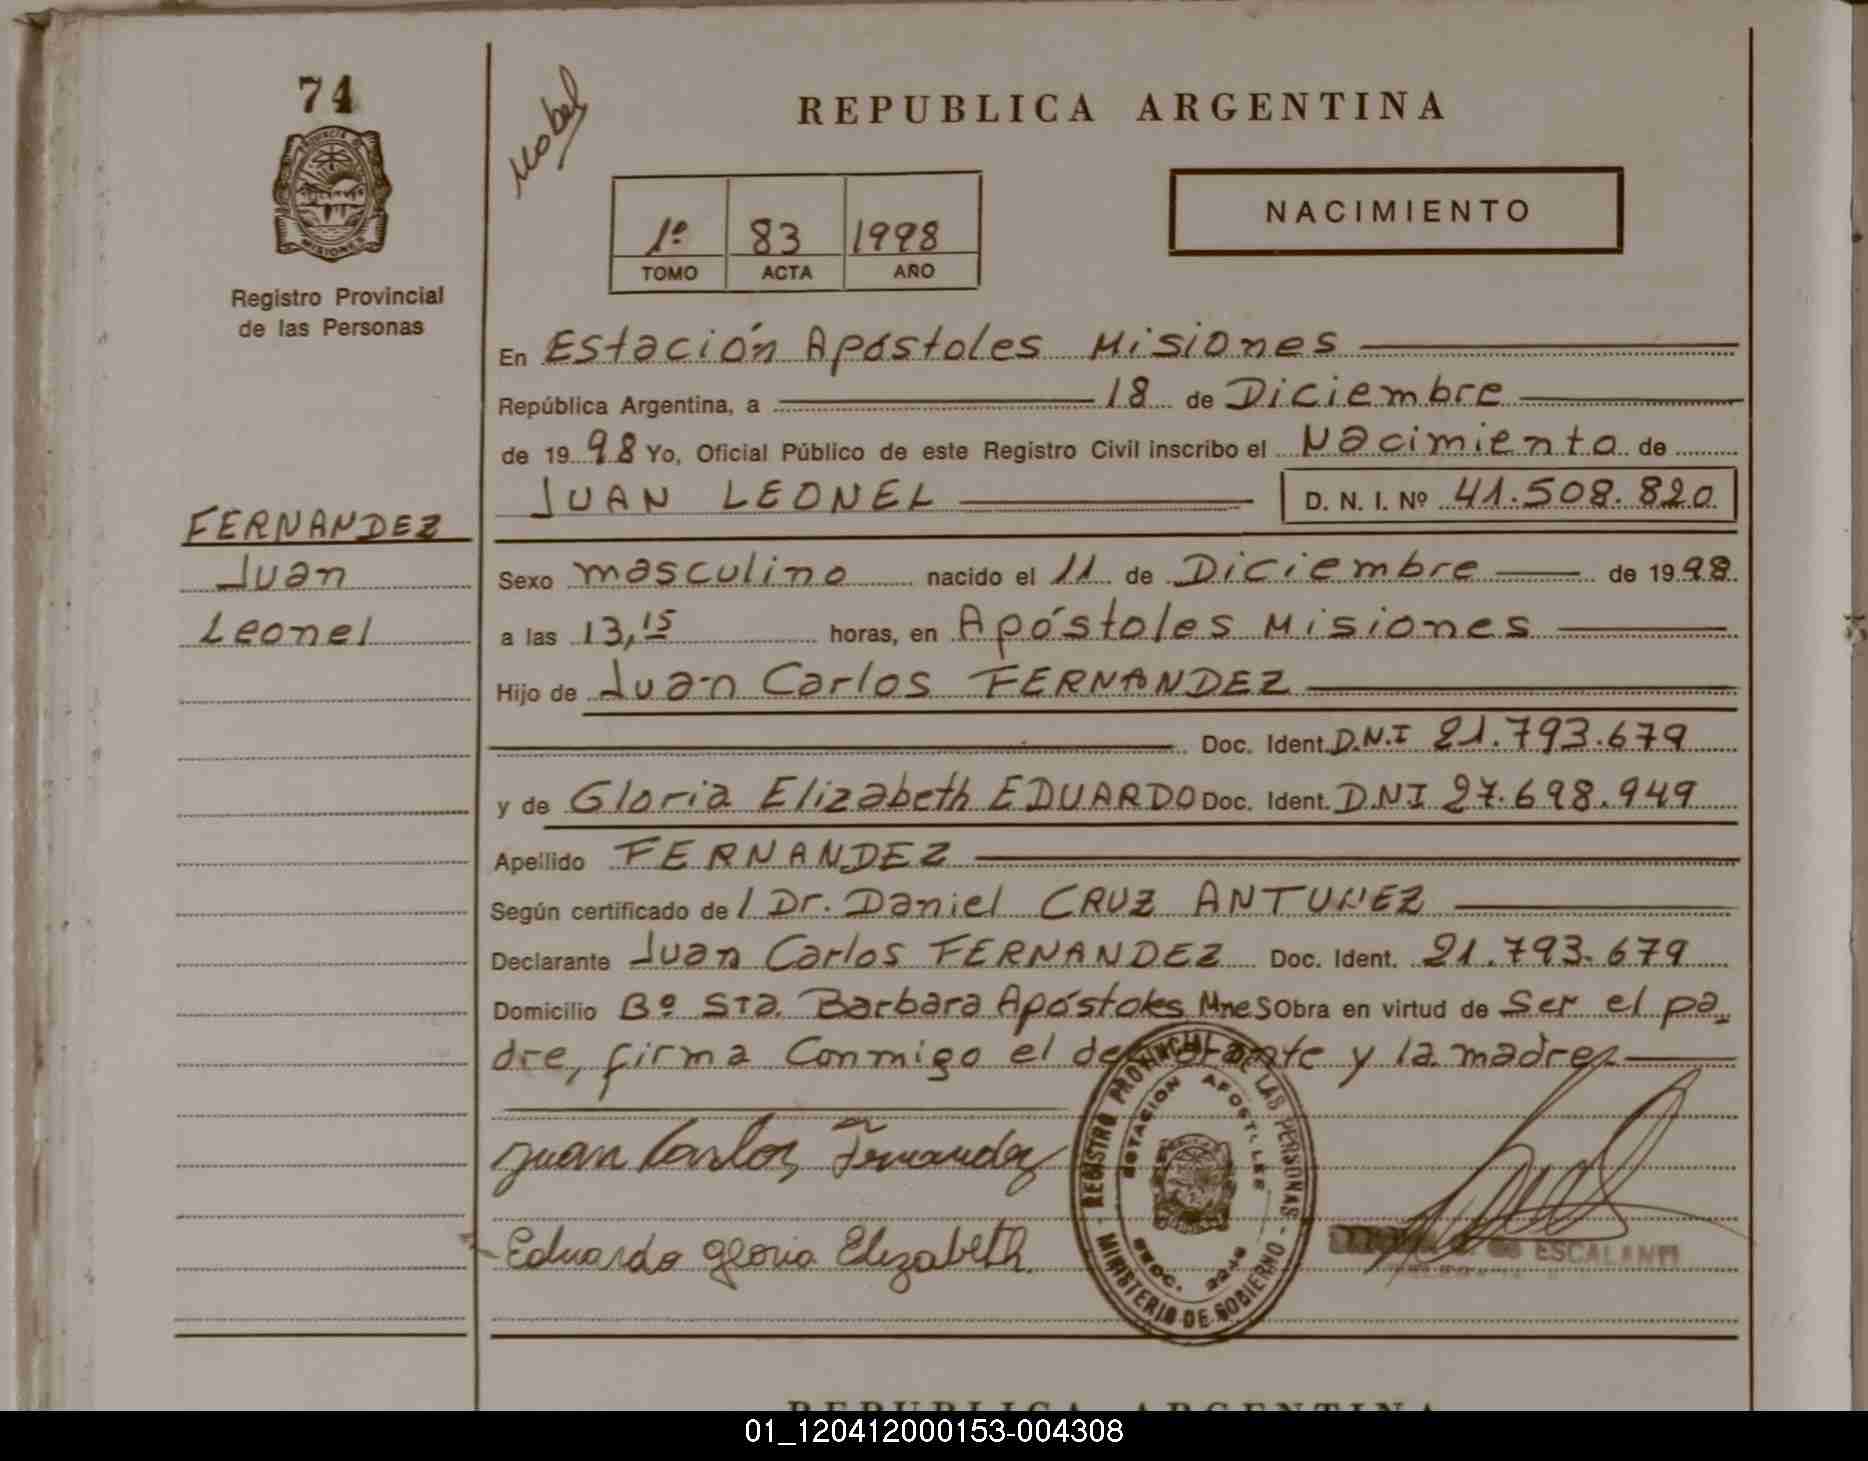 74
PROVINCIA DE
MISIONES
Registro Provincial
de las Personas
FERNANDEZ
Juan
Leonel
Mobel
REPUBLICA ARGENTINA
1º 83 1998
TOMO ACTA AÑO
NACIMIENTO
En Estación Apóstoles Misiones
República Argentina, a 18 de Diciembre
de 1998 Yo, Oficial Público de este Registro Civil inscribo el Nacimiento de
JUAN LEONEL D. N. I. Nº 41.508.820
Sexo masculino nacido el 11 de Diciembre de 1998
a las 13,15 horas, en Apóstoles Misiones
Hijo de Juan Carlos FERNANDEZ
Doc. Ident. D.N.I 21.793.679
y de Gloria Elizabeth EDUARDO Doc. Ident. DNI 27.698.949
Apellido FERNANDEZ
Según certificado de / Dr. Daniel CRUZ ANTUNEZ
Declarante Juan Carlos FERNANDEZ Doc. Ident. 21.793.679
Domicilio Bº Sta. Barbara Apóstoles Mnes Obra en virtud de Ser el pa_
dre, firma Conmigo el declarante y la madre
Juan Carlos Fernandez
Eduardo Gloria Elizabeth
REGISTRO PROVINCIAL DE LAS PERSONAS - MINISTERIO DE GOBIERNO -
ESTACION APOSTOLES
ESCALANTE
REPUBLICA ARGENTINA
01_120412000153-004308